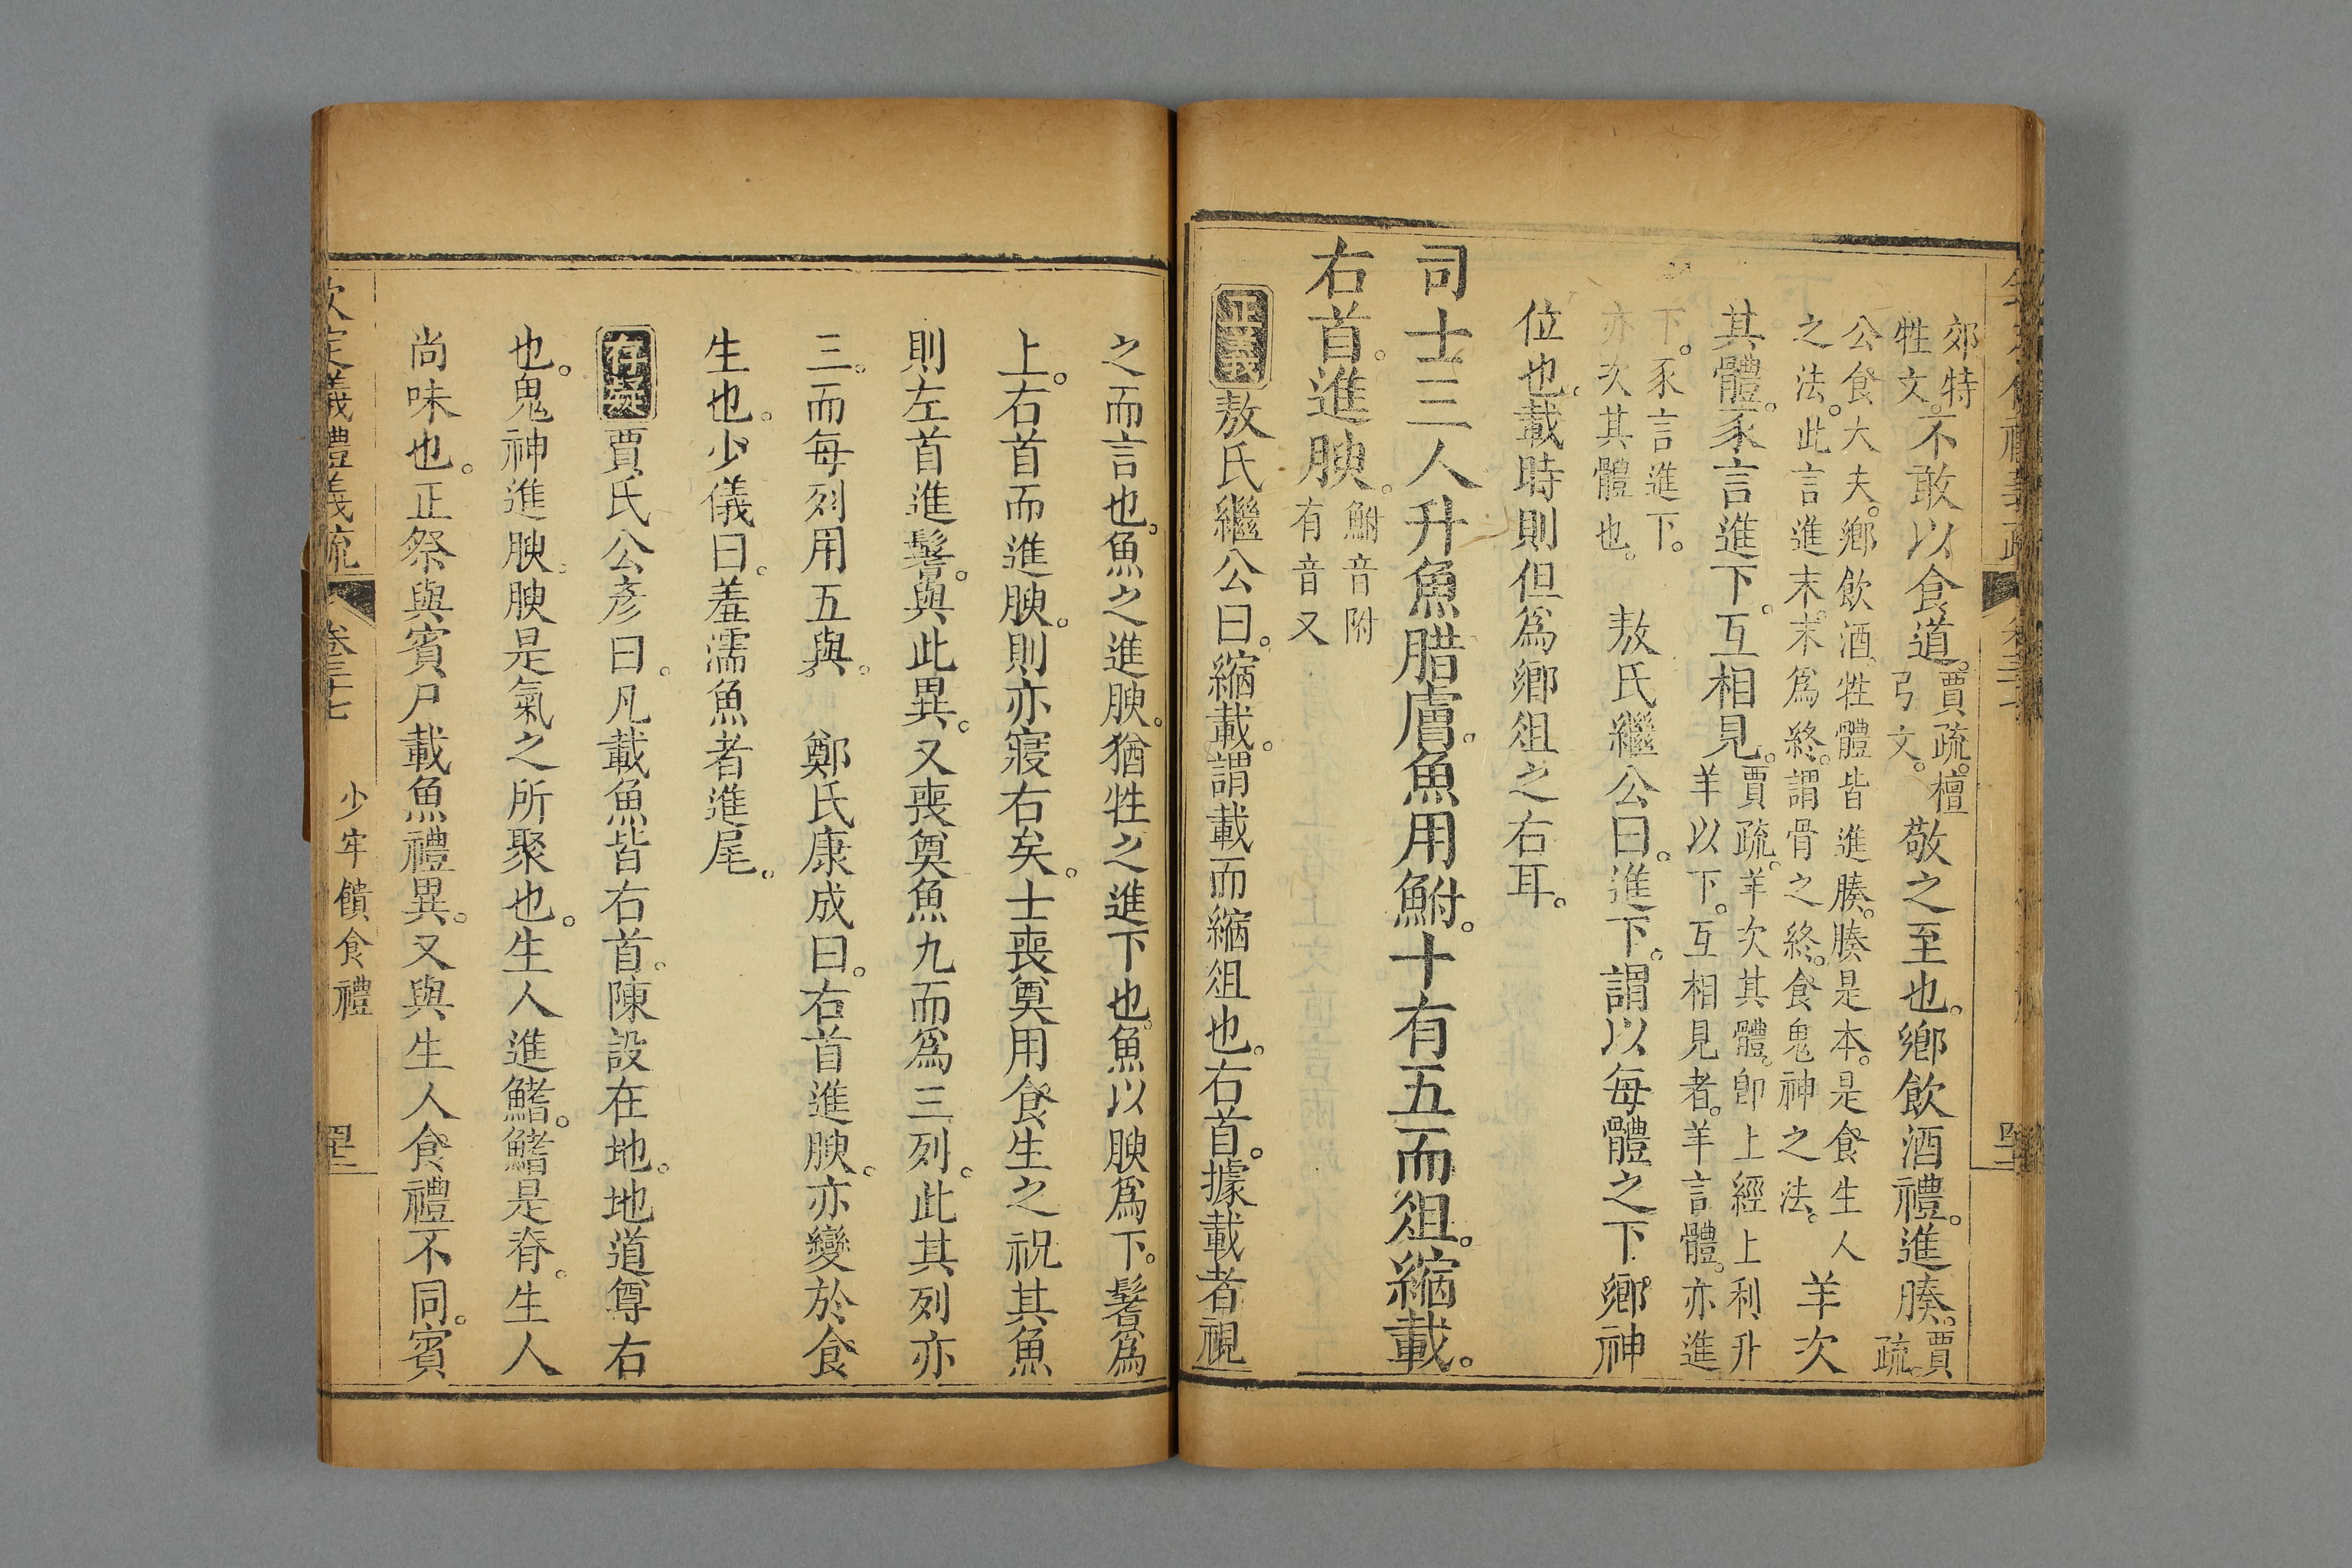 郊特牲文。不敢以食道。賈疏。檀弓文。敬之至也。鄉飲酒禮。進腠。賈疏。
公食大夫。鄉飲酒。牲體皆進腠。腠是本。是食生人之法。此言進末。末為終。謂骨之終。食鬼神之法。羊次
其體。豕言進下。互相見。賈疏。羊次其體。即上經上利升羊以下。互相見者。羊言體。亦進
下。豕言進下。亦次其體也。敖氏繼公曰。進下。謂以每體之下鄉神
位也。載時則但為鄉俎之右耳。
司士三人升魚腊膚。魚用鮒。十有五而俎。縮載。
右首。進腴。鮒音附有音又
正義敖氏繼公曰。縮載。謂載而縮俎也。右首。據載者視
之而言也。魚之進腴。猶牲之進下也。魚以腴為下。鬐為
上。右首而進腴。則亦寢右矣。士喪奠用食生之祝其魚
則左首進鬐。與此異。又喪奠魚九而為三列。此其列亦
三。而每列用五與。鄭氏康成曰。右首進腴。亦變於食
生也。少儀曰。羞濡魚者進尾。
存疑賈氏公彥曰。凡載魚皆右首。陳設在地。地道尊右
也。鬼神進腴。腴是氣之所聚也。生人進鰭。鰭是脊。生人
尚味也。正祭與賓尸載魚禮異。又與生人食禮不同。賓
欽定儀禮義疏 卷三十七 少牢饋食禮